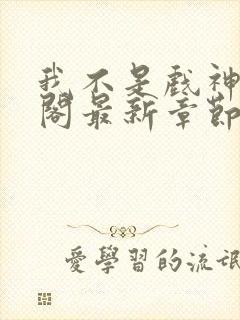 我不是戲神
閣最新章節
愛學習的流氓